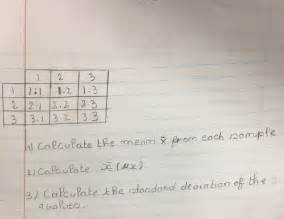 1 2 3
1 1.1 1.2 1.3
2 2.1 2.2 2.3
3 3.1 3.2 3.3
1) Calculate the mean x̄ from each sample
2) Calculate x̄ (μx)
3) Calculate the standard deviation of the
values.